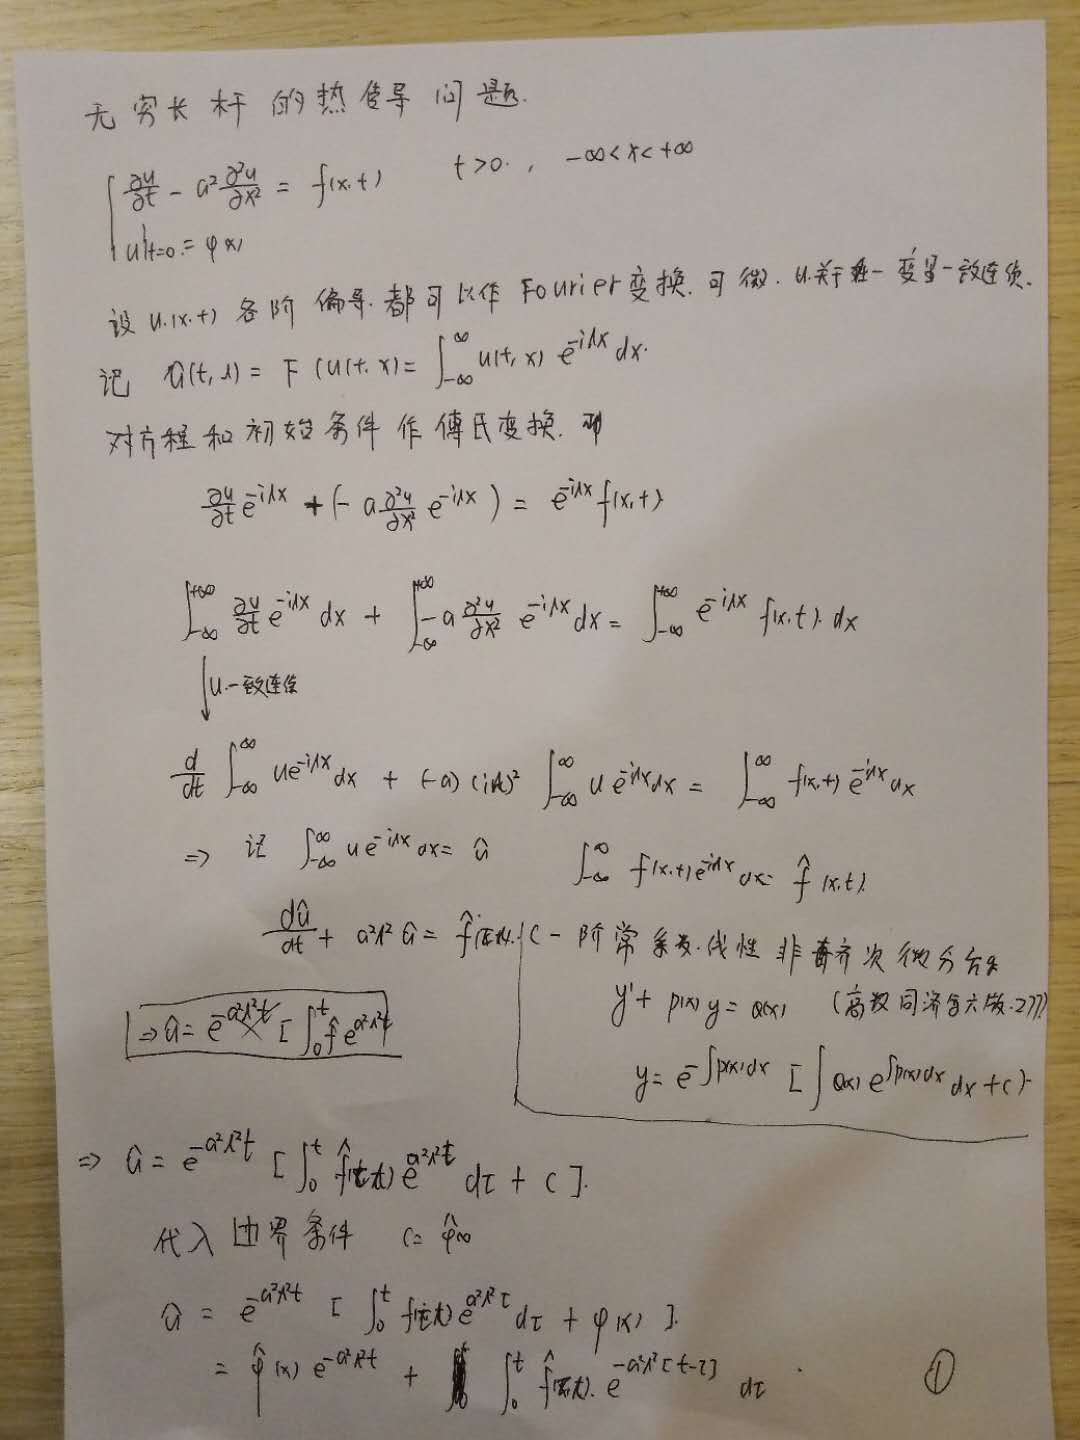 无穷长杆的热传导问题.
∂u/∂t - a² ∂²u/∂x² = f(x,t)  t>0. , -∞<x<+∞
u|t=0 = φ(x)
设 u(x,t) 各阶偏导.都可以作Fourier变换.可微. u关于 一变量一致连续.
记 û(t,λ) = F(u(t,x) = ∫_{-∞}^{∞} u(t,x) e^{-iλx} dx.
对方程和初始条件作傅氏变换.
∂u/∂t e^{-iλx} + (- a ∂²u/∂x² e^{-iλx}) = e^{-iλx} f(x,t)
∫_{-∞}^{+∞} ∂u/∂t e^{-iλx} dx + ∫_{-∞}^{+∞} -a ∂²u/∂x² e^{-iλx} dx = ∫_{-∞}^{+∞} e^{-iλx} f(x,t). dx
↓ u.一致连续
d/dt ∫_{-∞}^{∞} ue^{-iλx} dx + (-a) (iλ)² ∫_{-∞}^{∞} u e^{-iλx} dx = ∫_{-∞}^{∞} f(x,t) e^{-iλx} dx
⇒ 记 ∫_{-∞}^{∞} u e^{-iλx} dx = û  ∫_{-∞}^{∞} f(x,t) e^{-iλx} dx = f̂(x,t).
dû/dt + a²λ² û = f̂ (一阶常系数.线性非齐次微分方程
y' + p(x) y = Q(x) (高数同济第六版.277)
⇒ û = e^{-a²λ²t} [ ∫_0^t f̂ e^{a²λ²t}
y = e^{-∫p(x)dx} [ ∫ Q(x) e^{∫p(x)dx} dx + C ].
⇒ û = e^{-a²λ²t} [ ∫_0^t f̂ e^{a²λ²t} dτ + C ].
代入边界条件 C = φ̂
û = e^{-a²λ²t} [ ∫_0^t f e^{a²λ²τ} dτ + φ(x) ].
= φ̂(x) e^{-a²λ²t} + ∫_0^t f̂ . e^{-a²λ²[t-τ]} dτ . ①